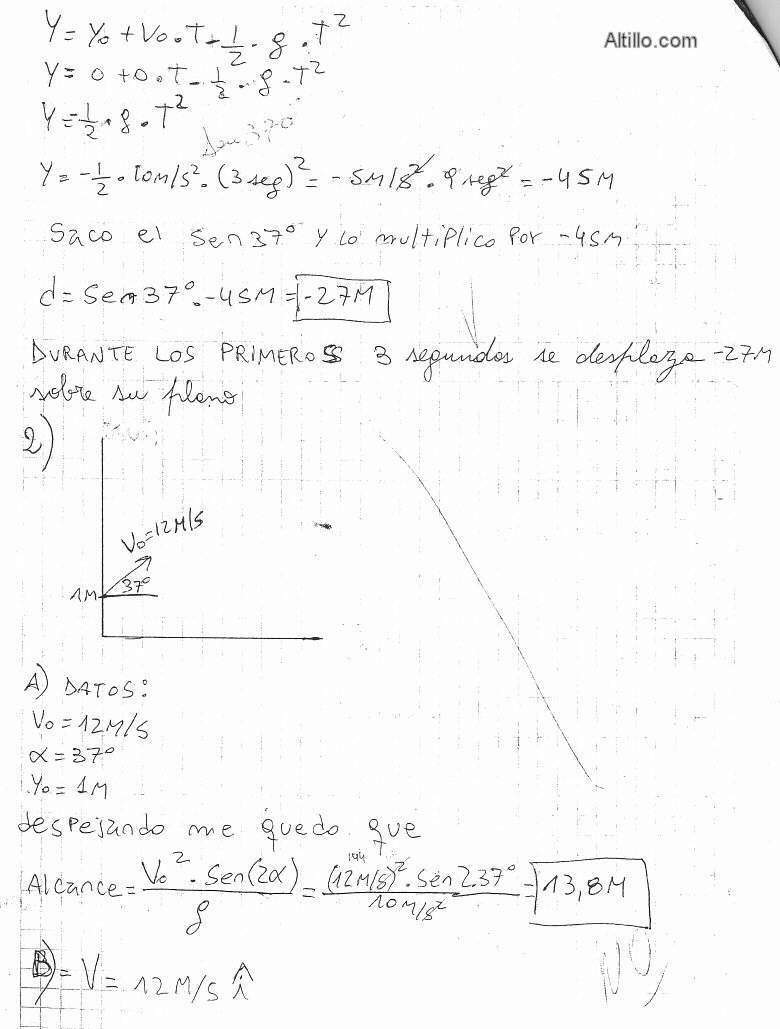 Altillo.com
Y = Y₀ + V₀ . T - 1/2 . g . T²
Y = 0 + 0 . T - 1/2 . g . T²
Y = -1/2 . g . T²
Sen 370
Y = -1/2 . 10 M/S² . (3 seg)² = -5M/S² . 9 seg² = -45M
Saco el Sen 37° y lo multiplico por -45M
d = Sen 37° . -45M = -27M
DURANTE LOS PRIMEROS 3 segundos se desplaza -27M
sobre su plano
2)
V₀ = 12M/S
37°
1M
A) DATOS:
V₀ = 12M/S
α = 37°
Y₀ = 1M
despejando me quedo que
144
Alcance = V₀² . Sen(2α) / g = (12M/S)² . Sen 2.37° / 10 M/S² = 13,8M
NO,
B) = V = 12M/S î